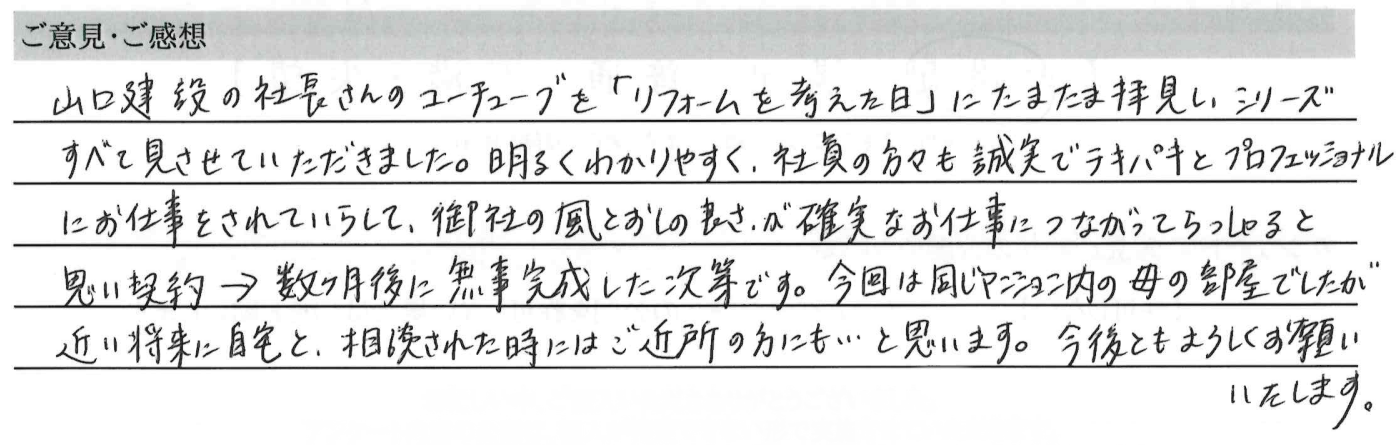 ご意見・ご感想
山口建設の社長さんのユーチューブを「リフォームを考えた日」にたまたま拝見し、シリーズ
すべて見させていただきました。明るくわかりやすく、社員の方々も誠実でテキパキとプロフェッショナル
にお仕事をされていらして、御社の風とおしの良さが確実なお仕事につながってらっしゃると
思い契約→数ヶ月後に無事完成した次第です。今回は同じマンション内の母の部屋でしたが
近い将来に自宅と、相談された時にはご近所の方にも…と思います。今後ともよろしくお願い
いたします。